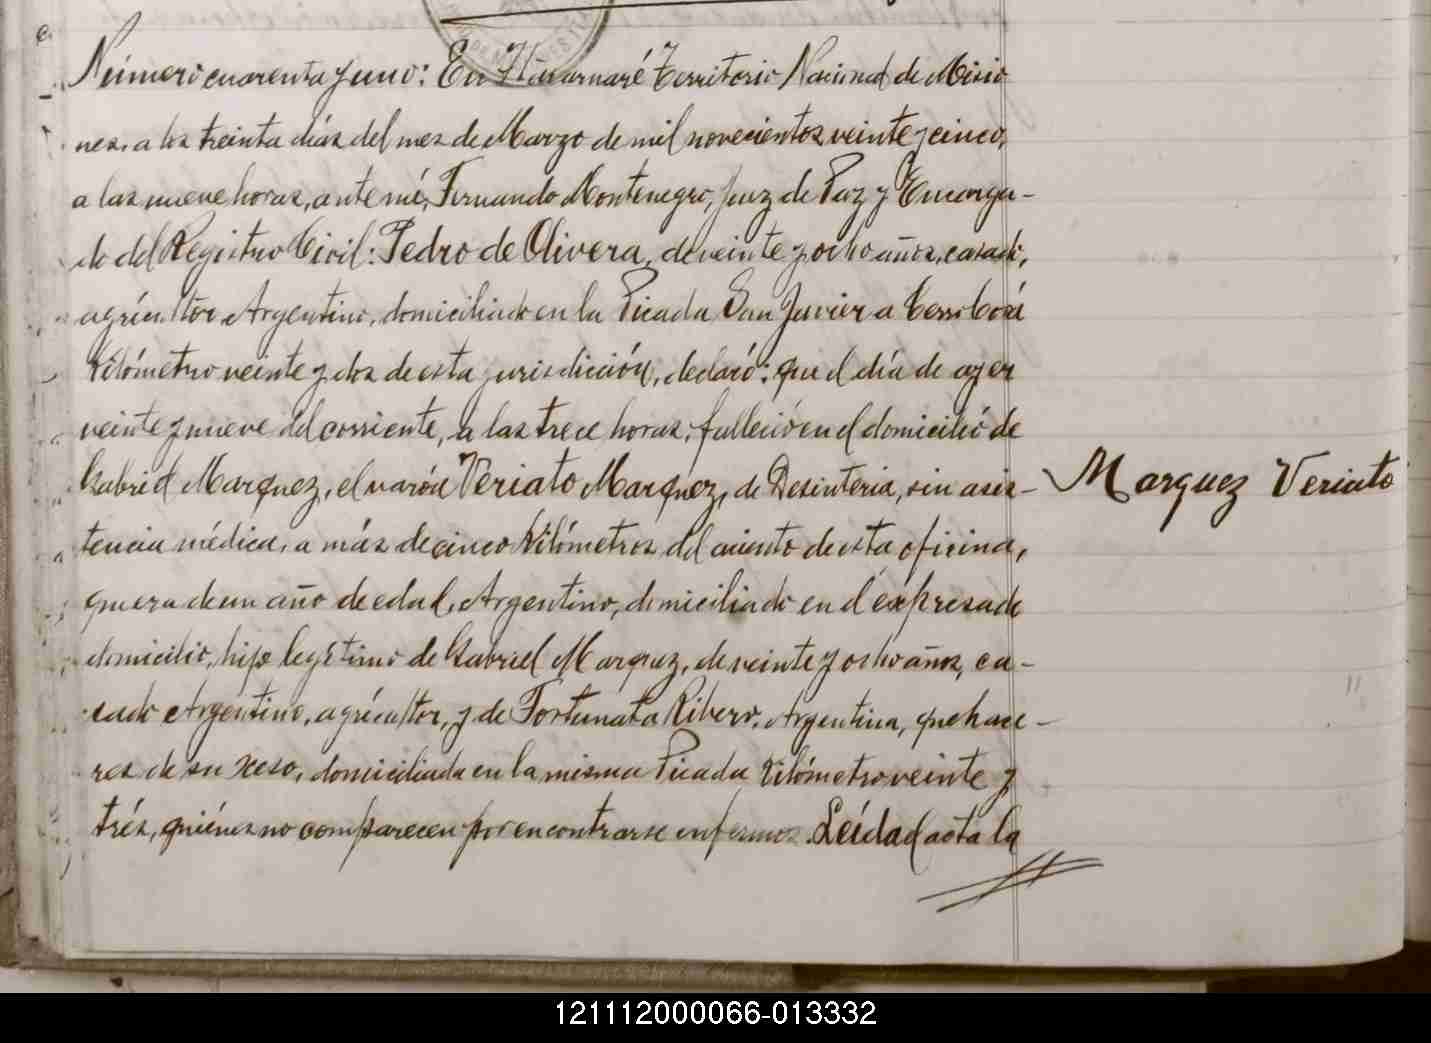 Número cuarenta y uno: En Itacaruaré Territorio Nacional de Misio
nes, a los treinta días del mes de Marzo de mil novecientos veinte y cinco,
a las nueve horas, ante mí, Fernando Montenegro, Juez de Paz y Encarga-
do del Registro Civil: Pedro de Olivera, de veinte y ocho años, casado,
agricultor, Argentino, domiciliado en la Picada San Javier a Cerro Corá
Kilómetro veinte y dos de esta jurisdicción, declaró: que el día de ayer
veinte y nueve del corriente, a las trece horas, falleció en el domicilió de
Gabriel Marquez, el varón Veriato Marquez, de Desinteria, sin asis-
Marquez Veriato
tencia médica, a más de cinco Kilómetros del asiento de esta oficina,
que era de un año de edad, Argentino, domiciliado en el expresado
domicilio, hijo legítimo de Gabriel Marquez, de veinte y ocho años, ca-
sado Argentino, agricultor, y de Fortunata Ribero, Argentina, quehace-
res de su sexo, domiciliada en la misma Picada Kilómetro veinte y
trés, quiénes no comparecen por encontrarse enfermos. Leída el acta la
121112000066-013332